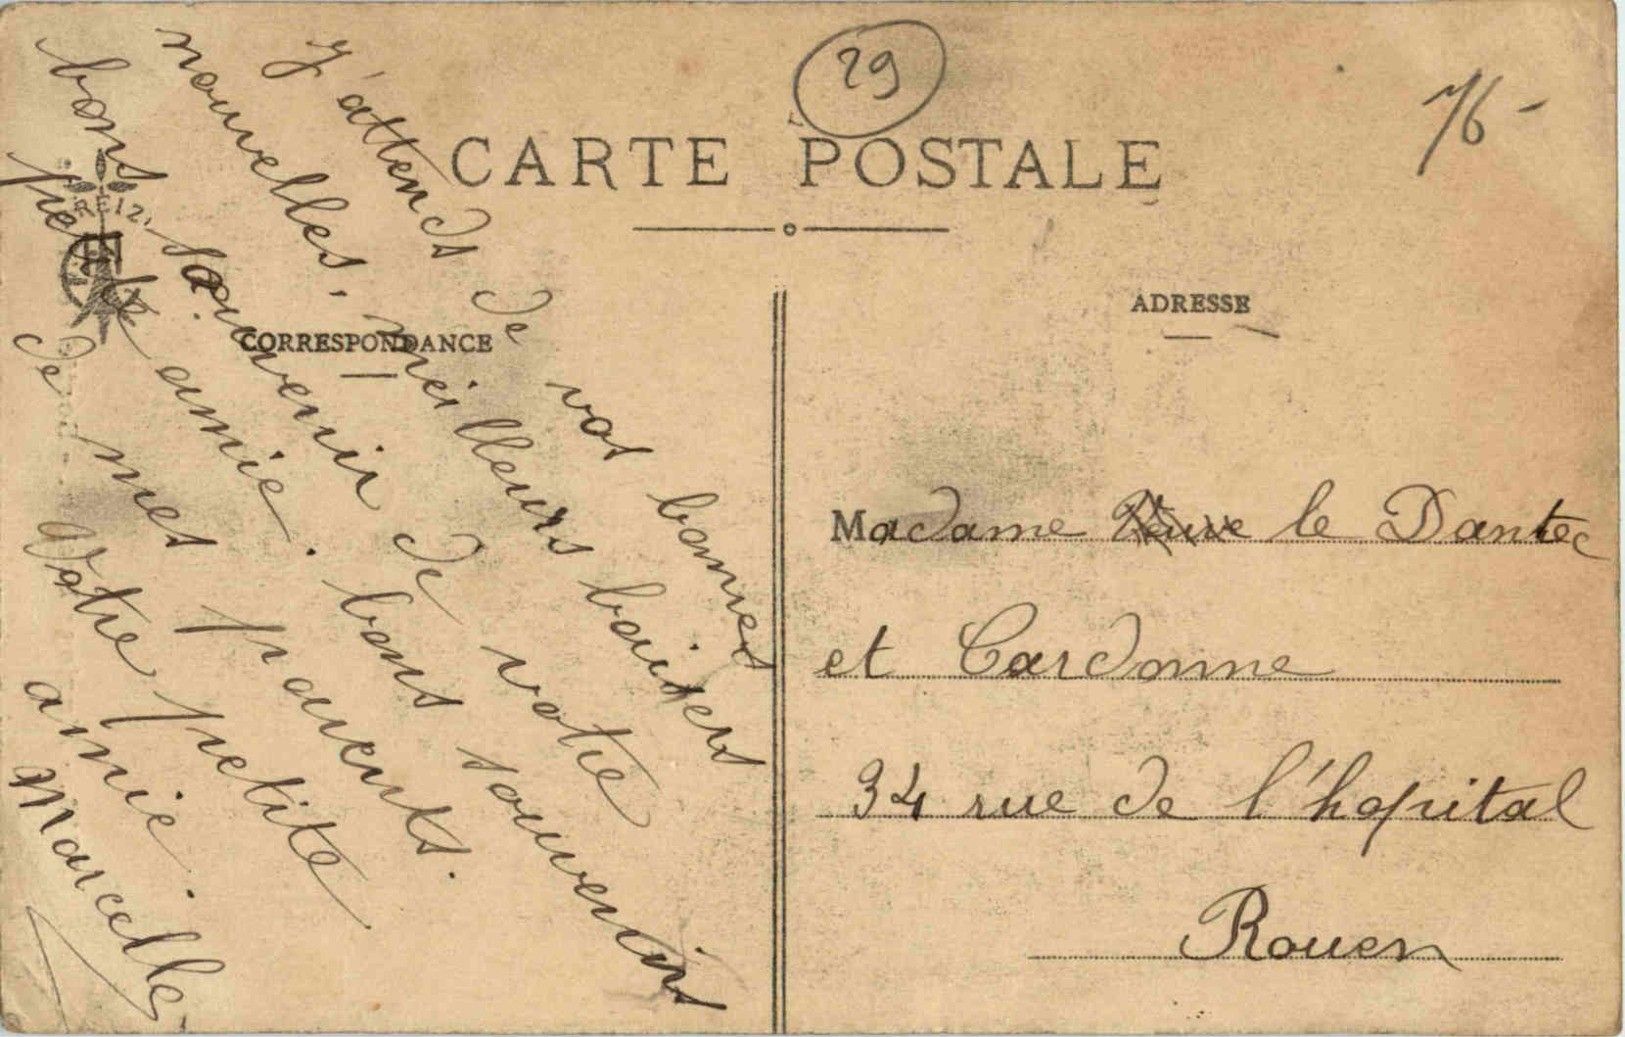 29
76-
CARTE POSTALE
CORRESPONDANCE
ADRESSE
J'attends de vos bonnes
nouvelles. meilleurs baisers
bons souvenir de votre
petite amie. bons souvenirs
de mes parents.
Votre petite
amie.
Marcelle
Madame Veuve le Dantec
et Cardonne
34 rue de l'hopital
Rouen